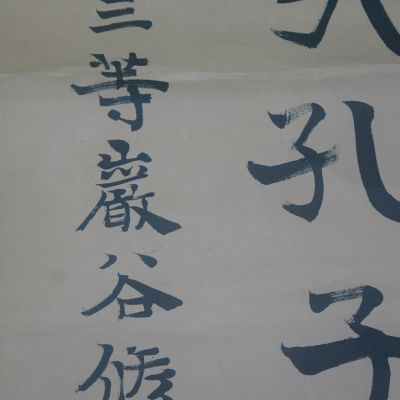 孔子
三等巖谷